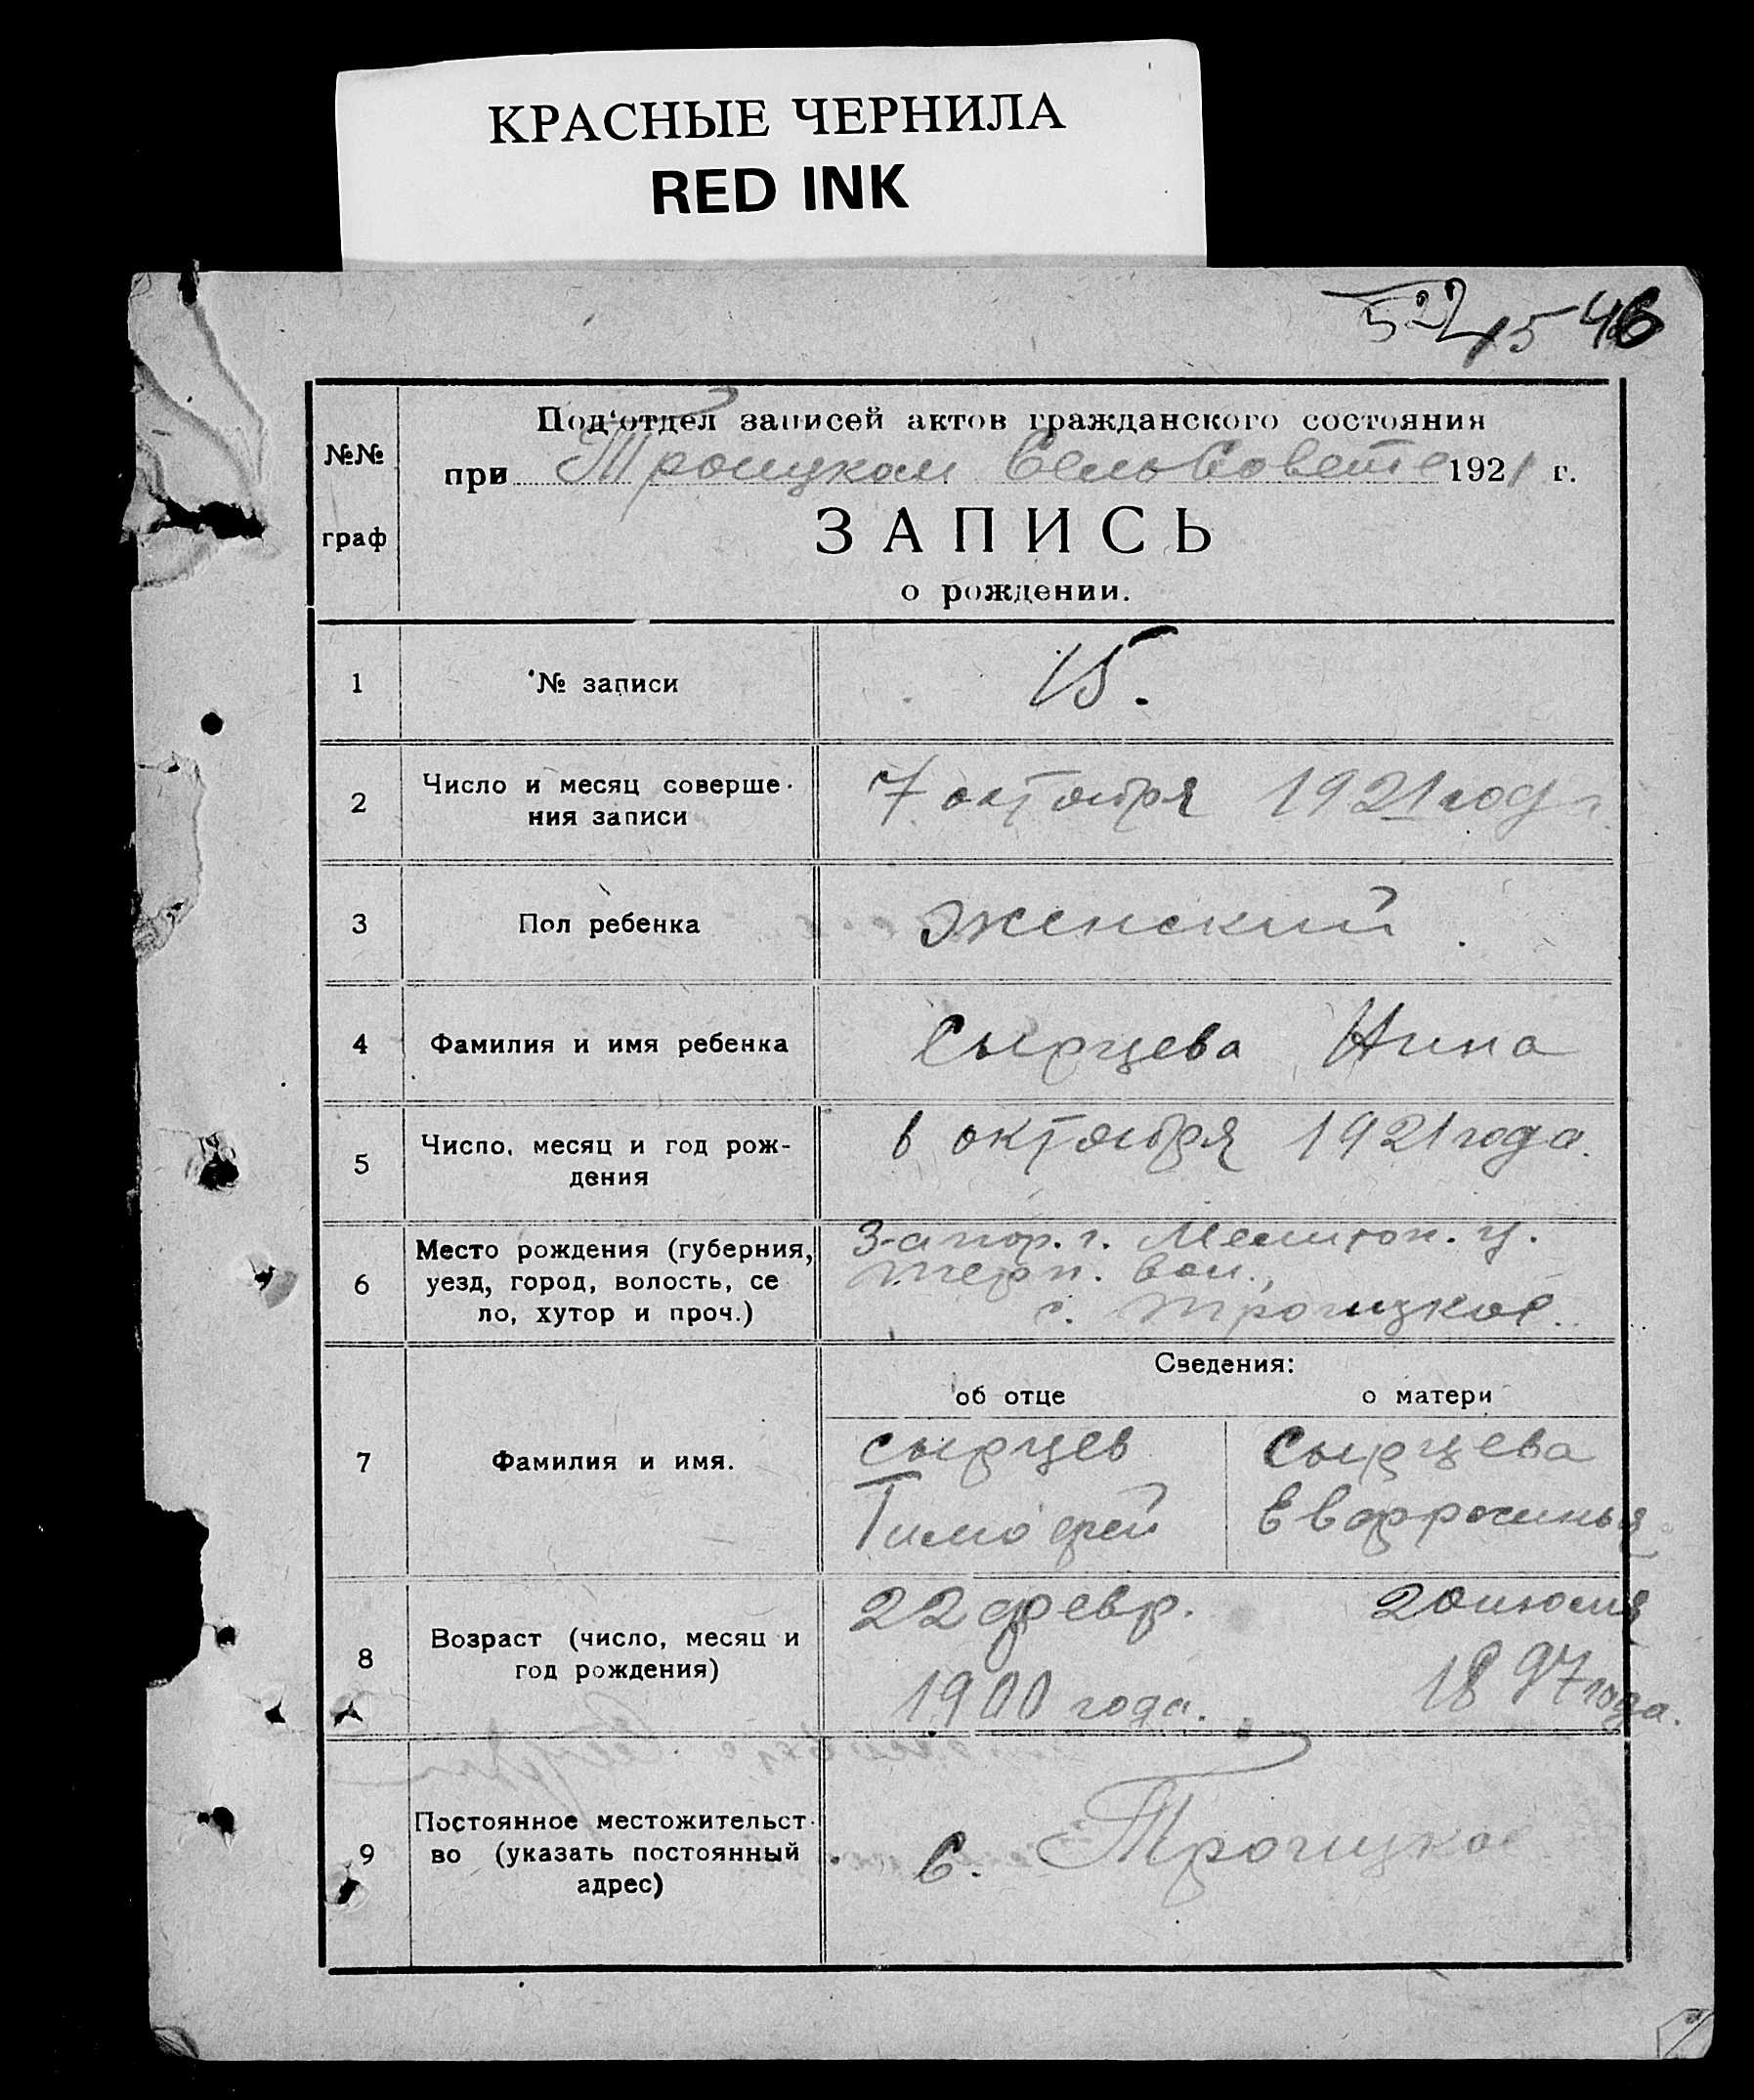 КРАСНЫЕ ЧЕРНИЛА
RED INK
522 15 46
№№
граф
Под'отдел записей актов гражданского состояния
при Троицком Сельсовете 1921 г.
ЗАПИСЬ
о рождении.
1 № записи 15.
2 Число и месяц соверше-
ния записи
7 октября 1921 года
3 Пол ребенка Женский
4 Фамилия и имя ребенка Сырцева Нина
5 Число, месяц и год рож-
дения
6 октября 1921 года.
6 Место рождения (губерния,
уезд, город, волость, се
ло, хутор и проч.)
Запор. г. Мелитоп. у.
Терп. вол.,
с. Троицкое.
Сведения:
об отце о матери
7 Фамилия и имя.
Сырцев Сырцева
Тимофей Евфросинья
8 Возраст (число, месяц и
год рождения)
22 февр. 20 июля
1900 года. 1897 года.
9 Постоянное местожительст-
во (указать постоянный
адрес)
С. Троицкое